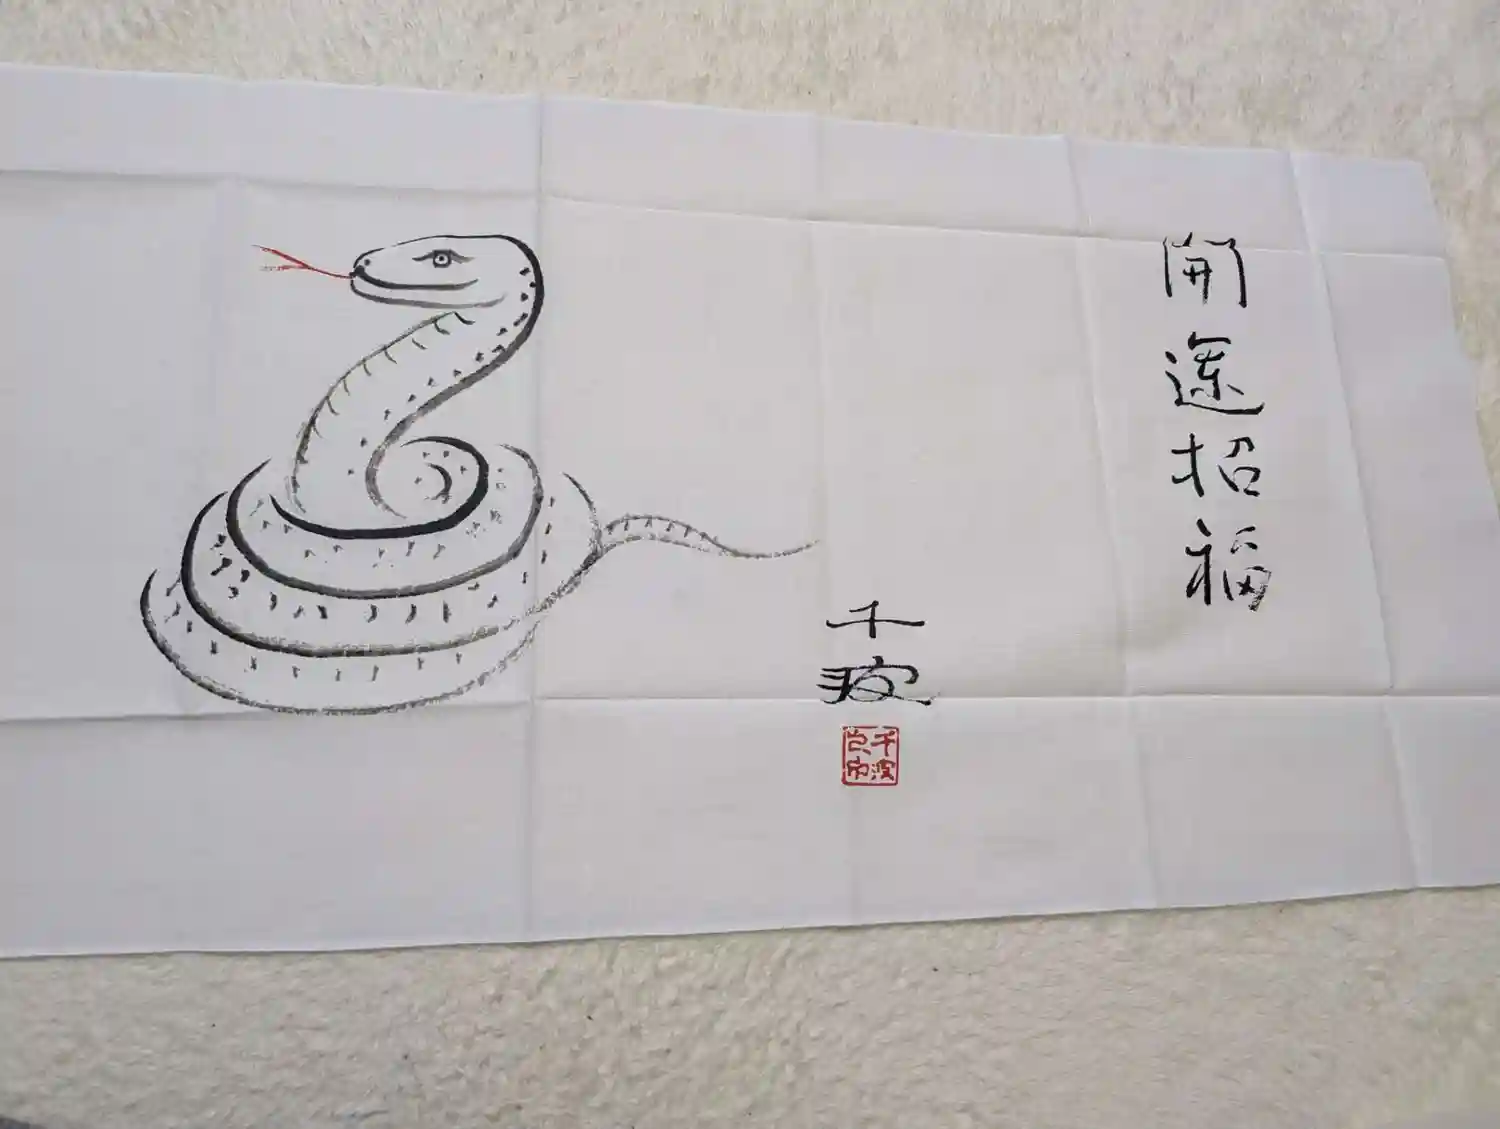 開運招福
千波
千波